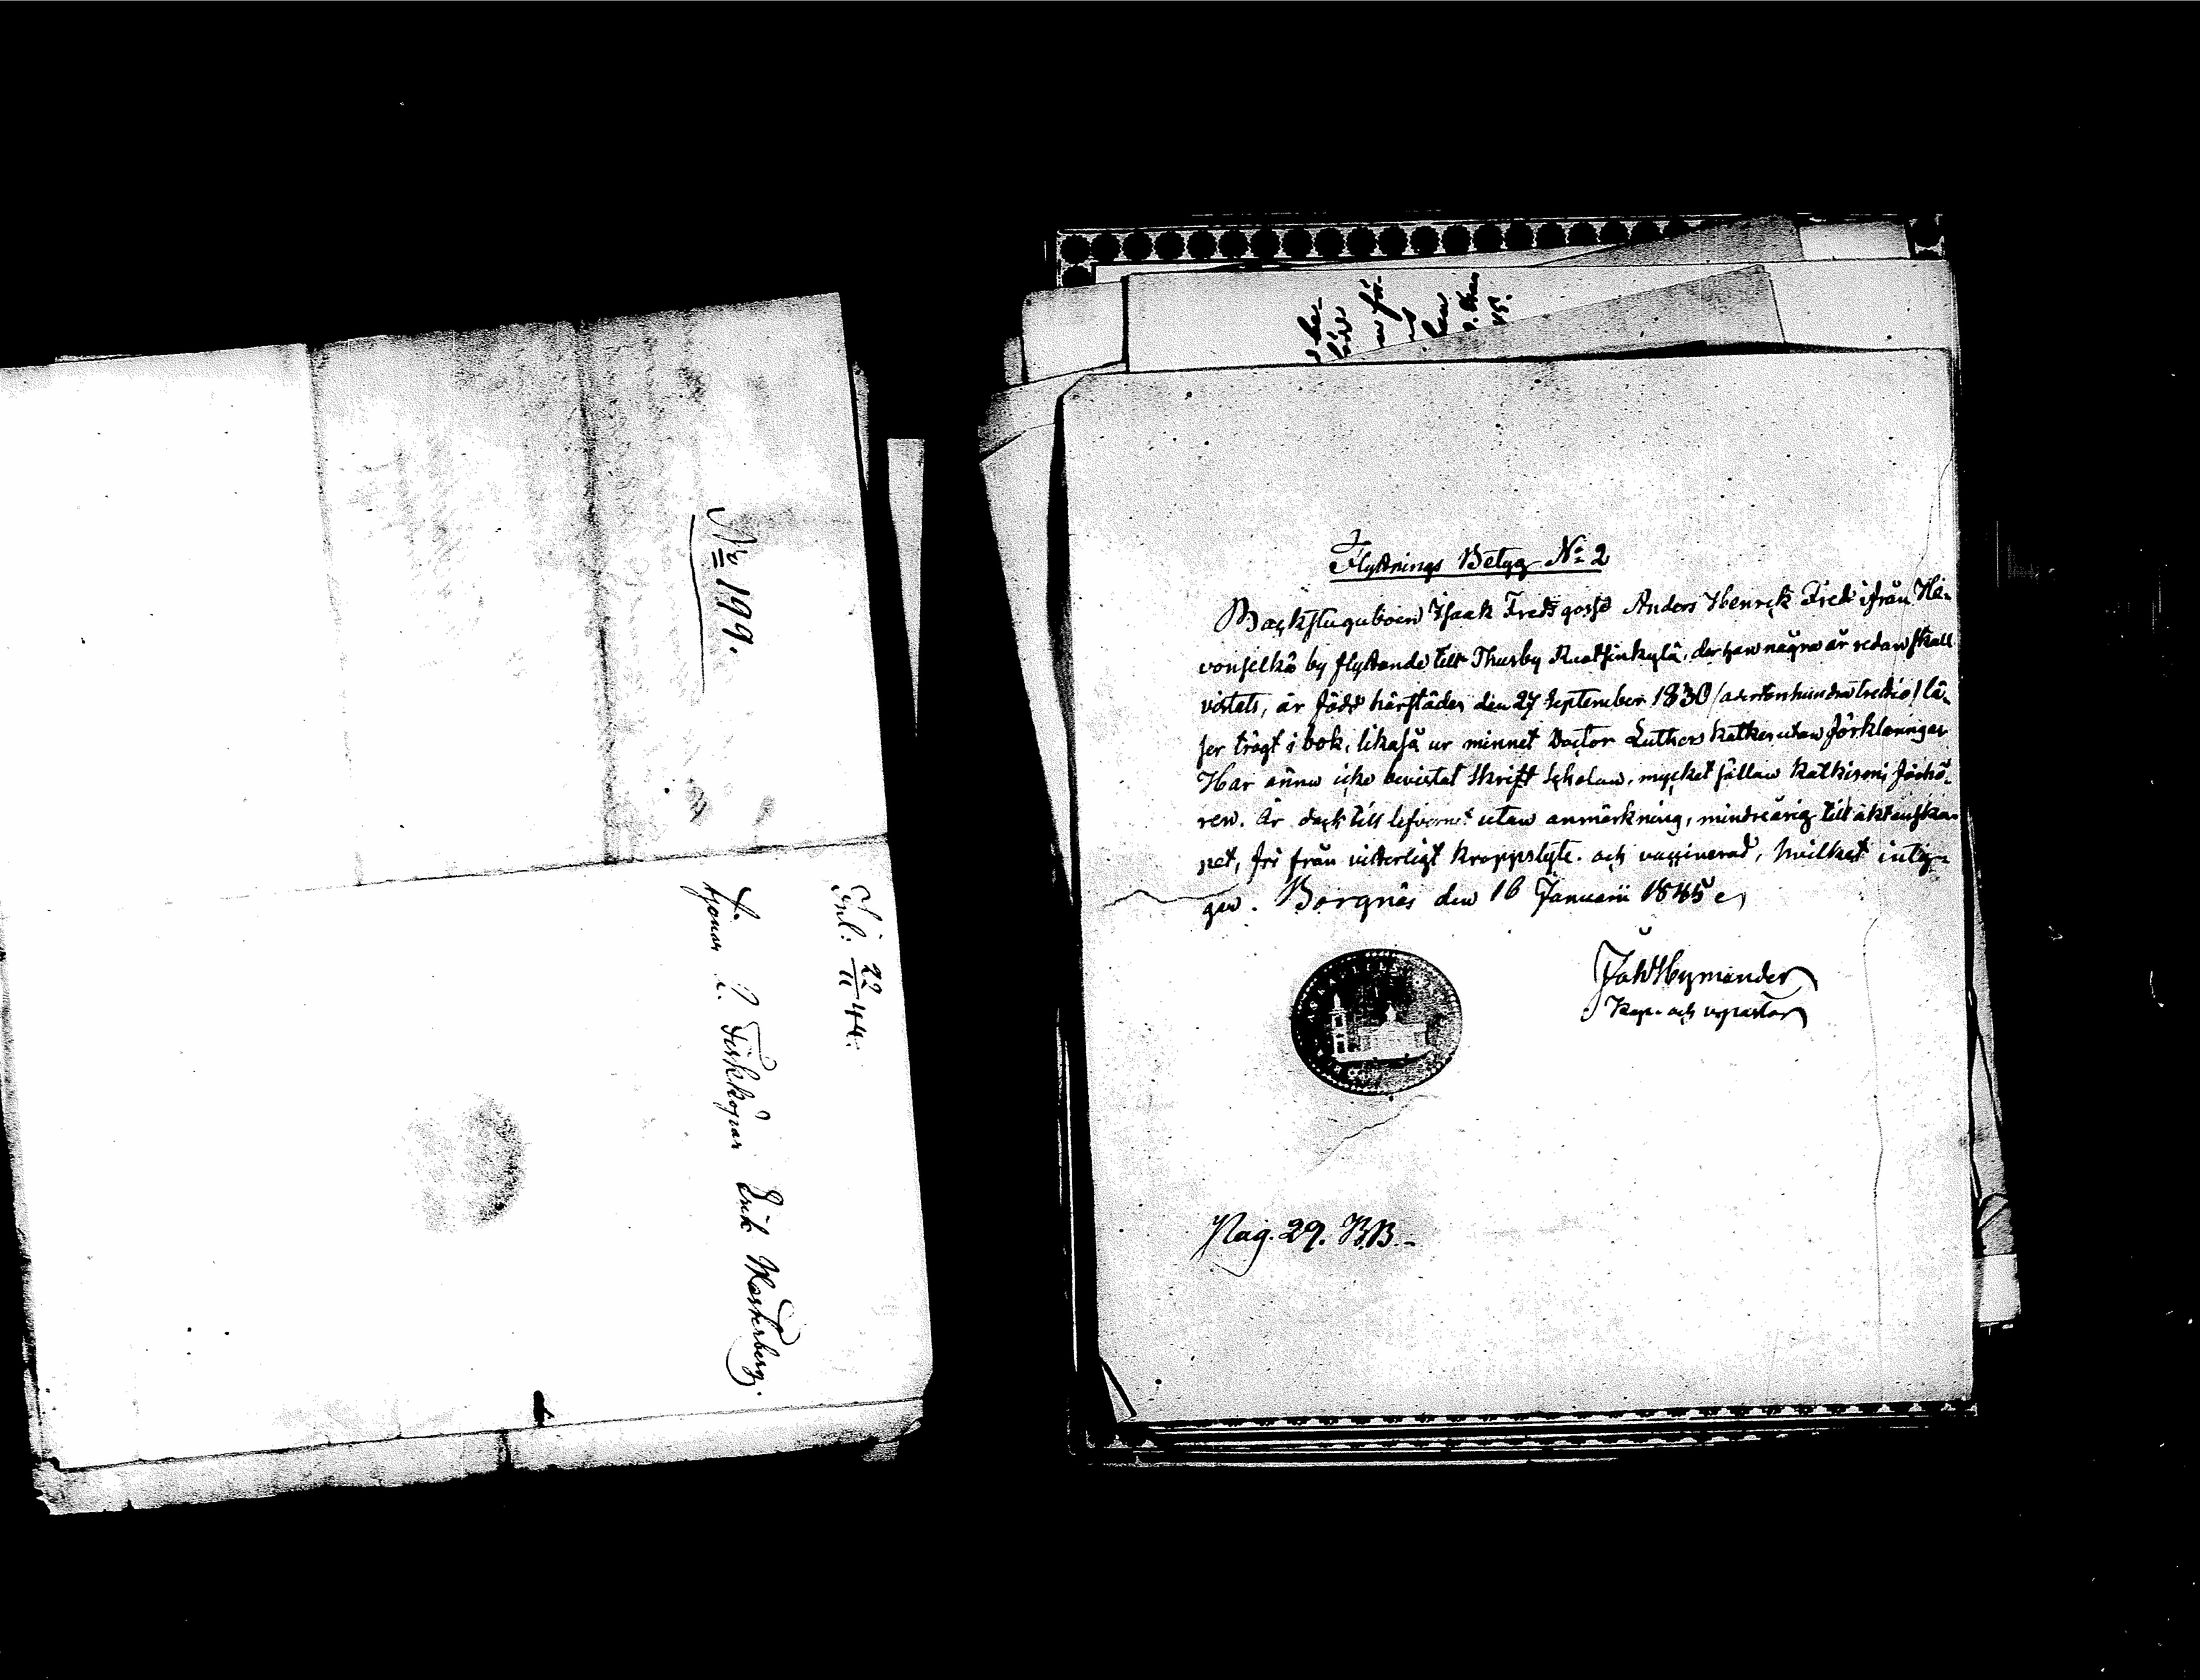 No 199.
Inl: 22/11 44.
tjenar i. Fiskköpar Erik Westerberg.
Flyttnings Betyg No 2
Backstuguboen Isaak Freds gosse Anders Henrick Fred ifrån He-
vonselkä by flyttande till Thusby Ruotsinkylä, der han några år redan skall
vistats, är född härstädes den 27 September 1830 /adertonhundratrettio/ lä-
ser trögt i bok, likaså ur minnet Doctor Luthers katkes utan förklaringar
Har ännu icke bevistat Skrift Scholan, mycket sällan Katkismi förhö-
ren. Är dock till lefvernet utan anmärkning, mindreårig till äktenska-
pet, fri från vitterligt kroppslyte och vaccinerad, hvilket inty-
gar. Borgnäs den 16 Januarii 1845
Joh Hymander
Kap. och vpastor
Pag. 29. BB.